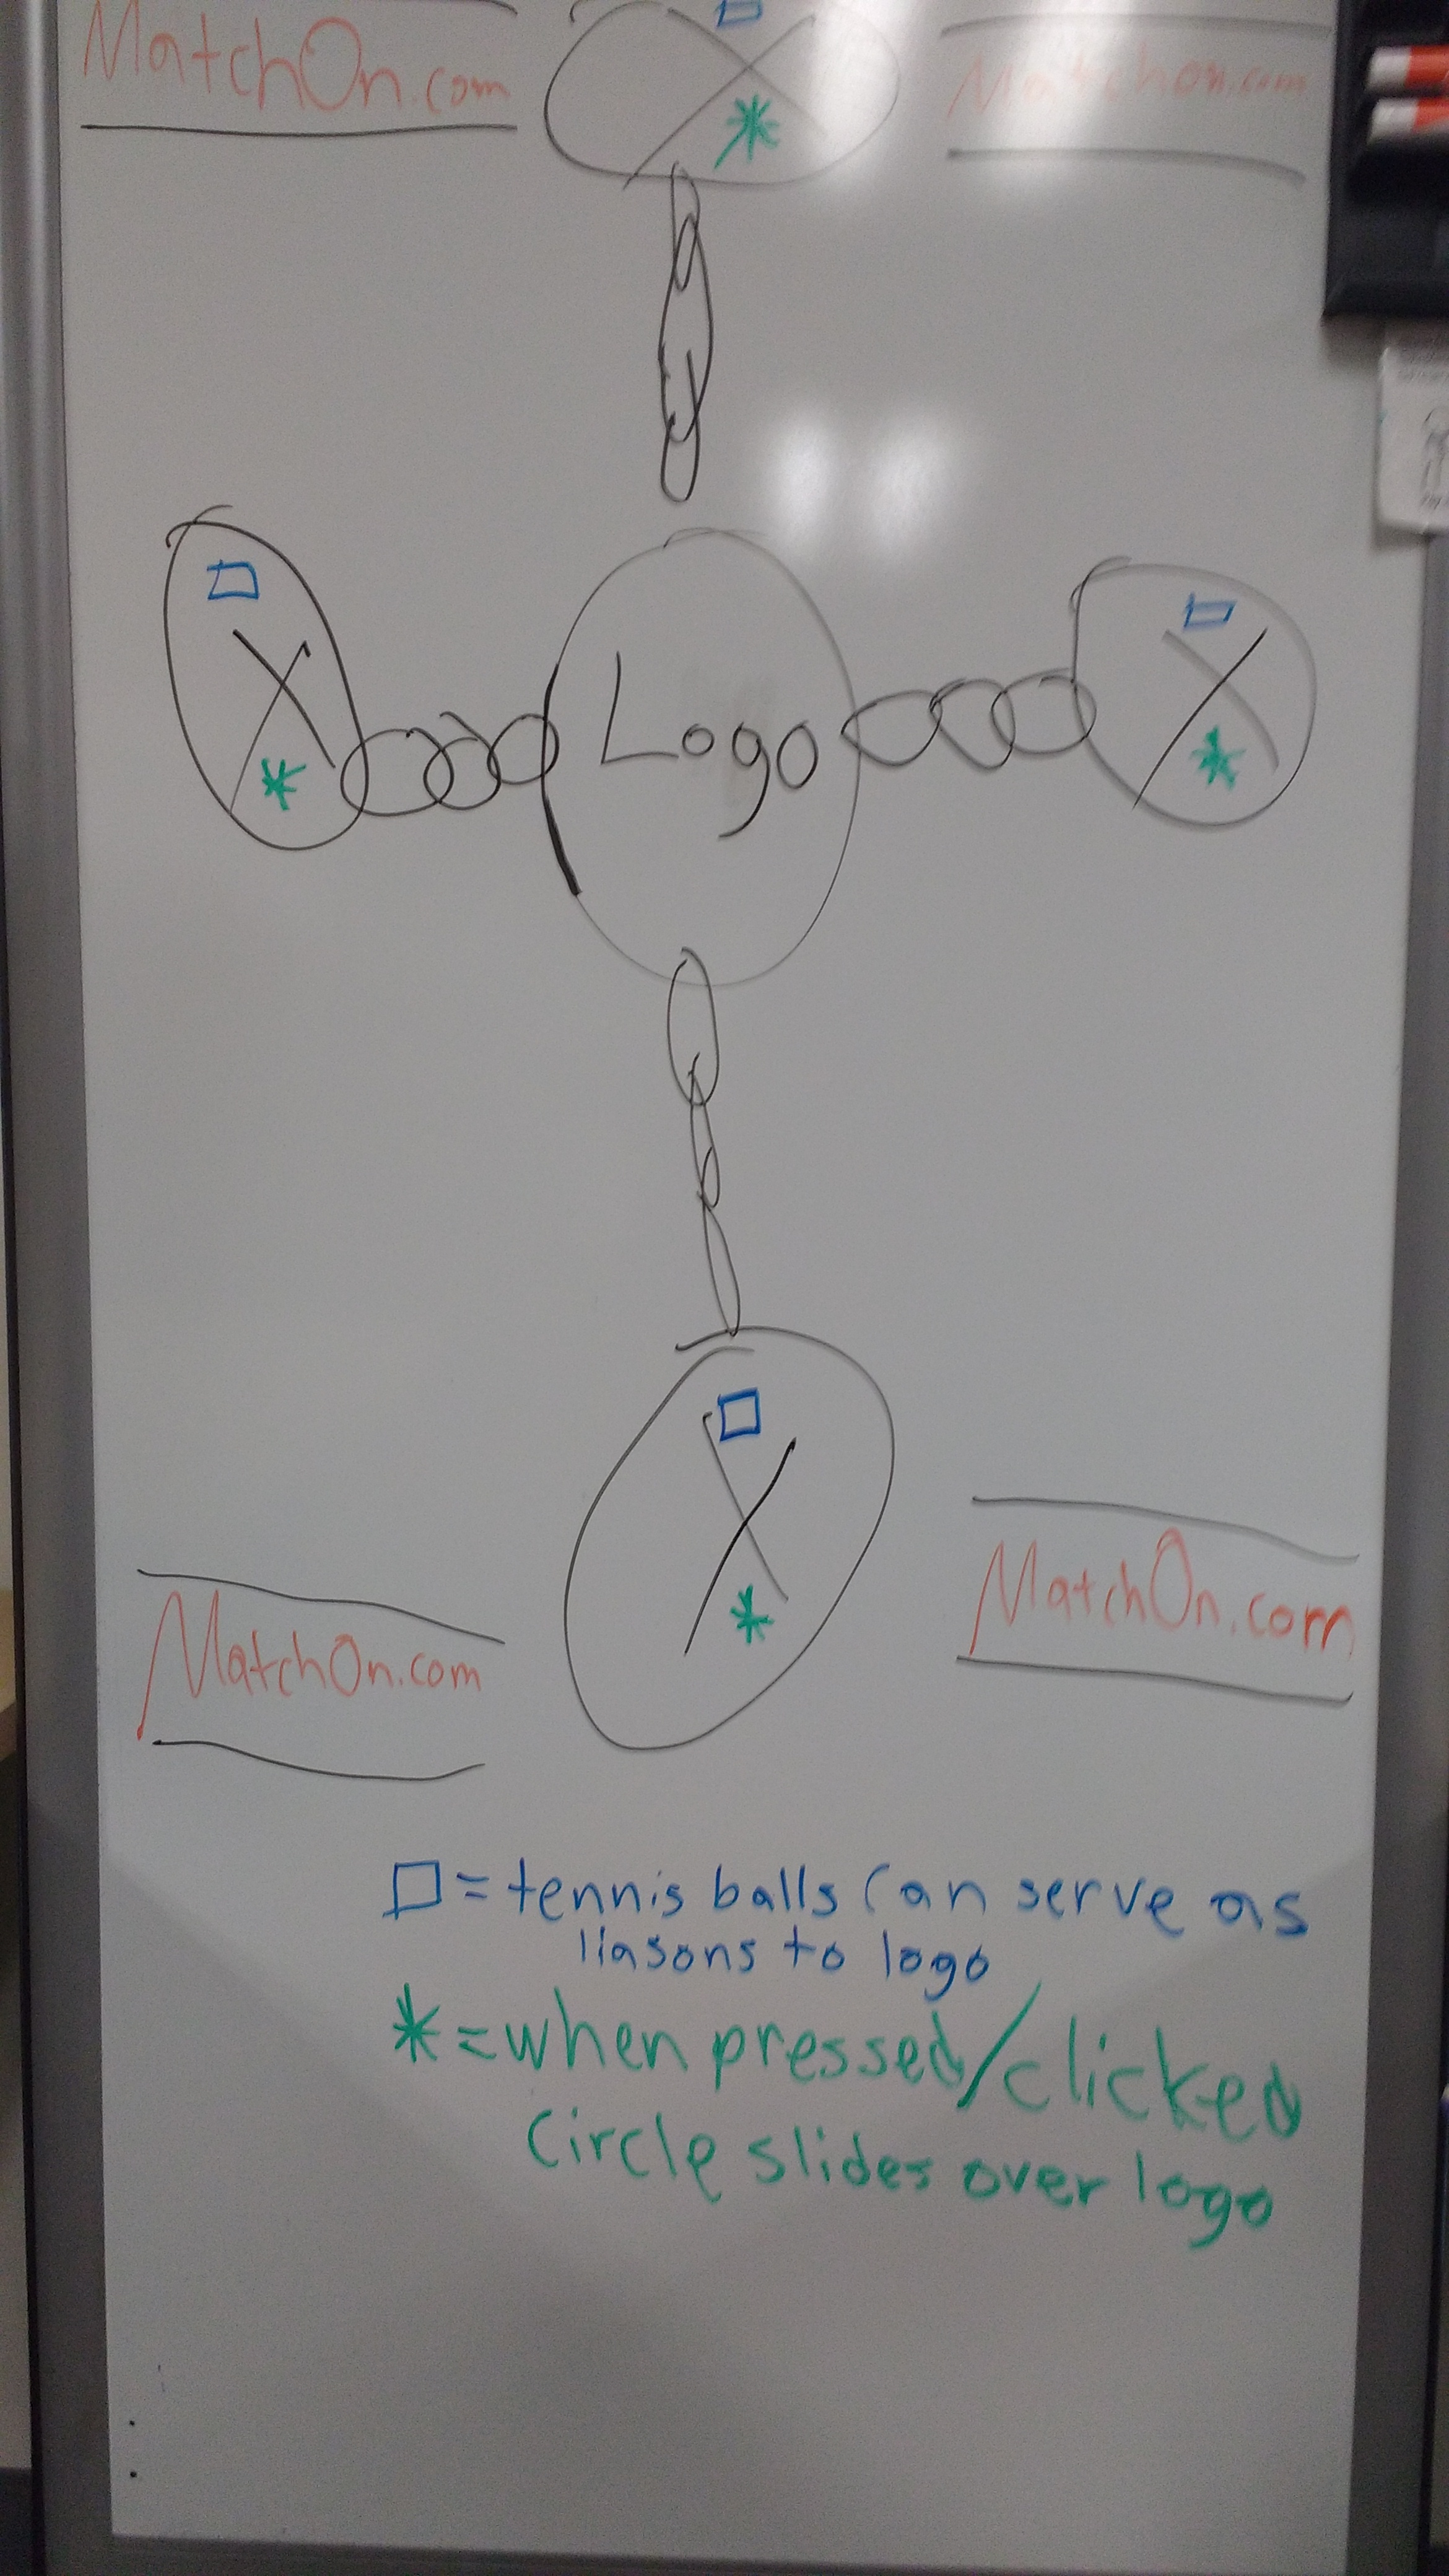 MatchOn.com
Matchon.com
Logo
MatchOn.com
MatchOn.com
□ = tennis balls can serve as
liasons to logo
* = when pressed/clicked
Circle slides over logo